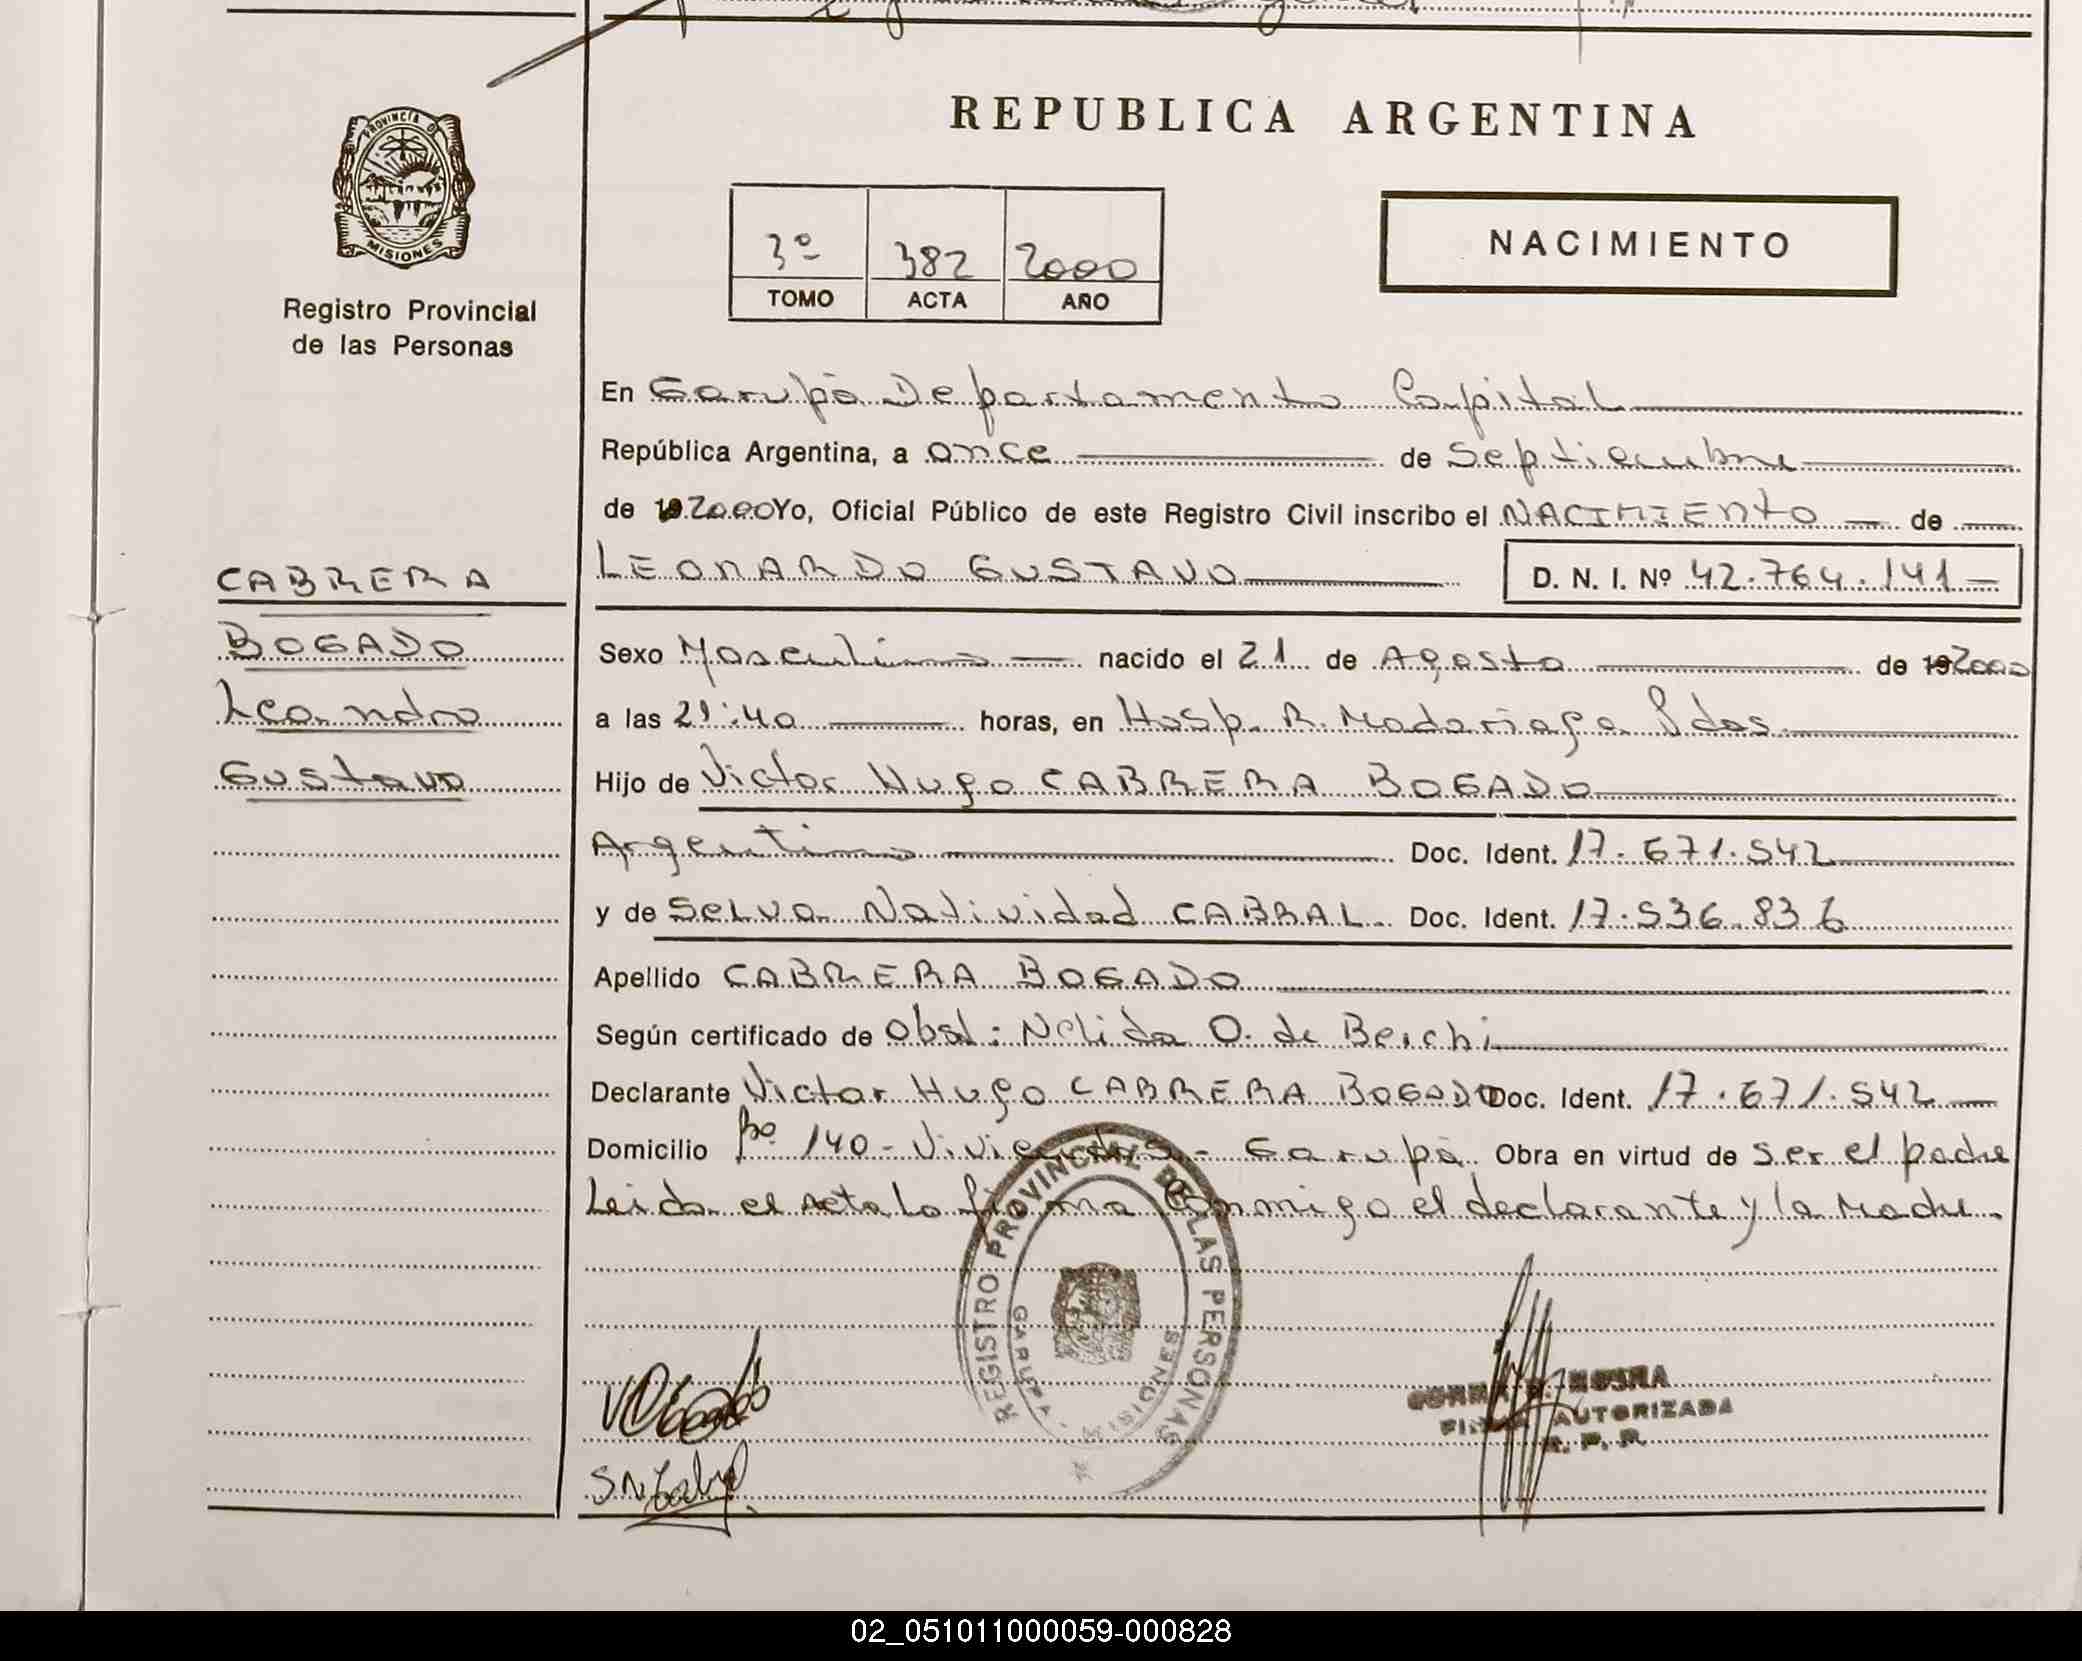 REPUBLICA ARGENTINA
PROVINCIA DE
MISIONES
Registro Provincial
de las Personas
3º 382 2000
TOMO ACTA AÑO
NACIMIENTO
En Garupá Departamento Capital
República Argentina, a once de Septiembre
de 19 2000 Yo, Oficial Público de este Registro Civil inscribo el NACIMIENTO de
LEONARDO GUSTAVO D. N. I. Nº 42.764.141
CABRERA
BOGADO
Leandro
Gustavo
Sexo Masculino nacido el 21 de Agosto de 19 2000
a las 21:40 horas, en Hosp. R. Madariaga Pdas
Hijo de Victor Hugo CABRERA BOGADO
Argentino Doc. Ident. 17.671.542
y de Selva Natividad CABRAL Doc. Ident. 17.536.836
Apellido CABRERA BOGADO
Según certificado de Obst: Nelida O. de Beichi
Declarante Victor Hugo CABRERA BOGADO Doc. Ident. 17.671.542
Domicilio Bº 140-Viviendas - Garupá Obra en virtud de ser el padre
Leida el acta lo firma conmigo el declarante y la Madre.
REGISTRO PROVINCIAL DE LAS PERSONAS
GARUPA MISIONES
FIRMA AUTORIZADA
R. P. P.
02_051011000059-000828